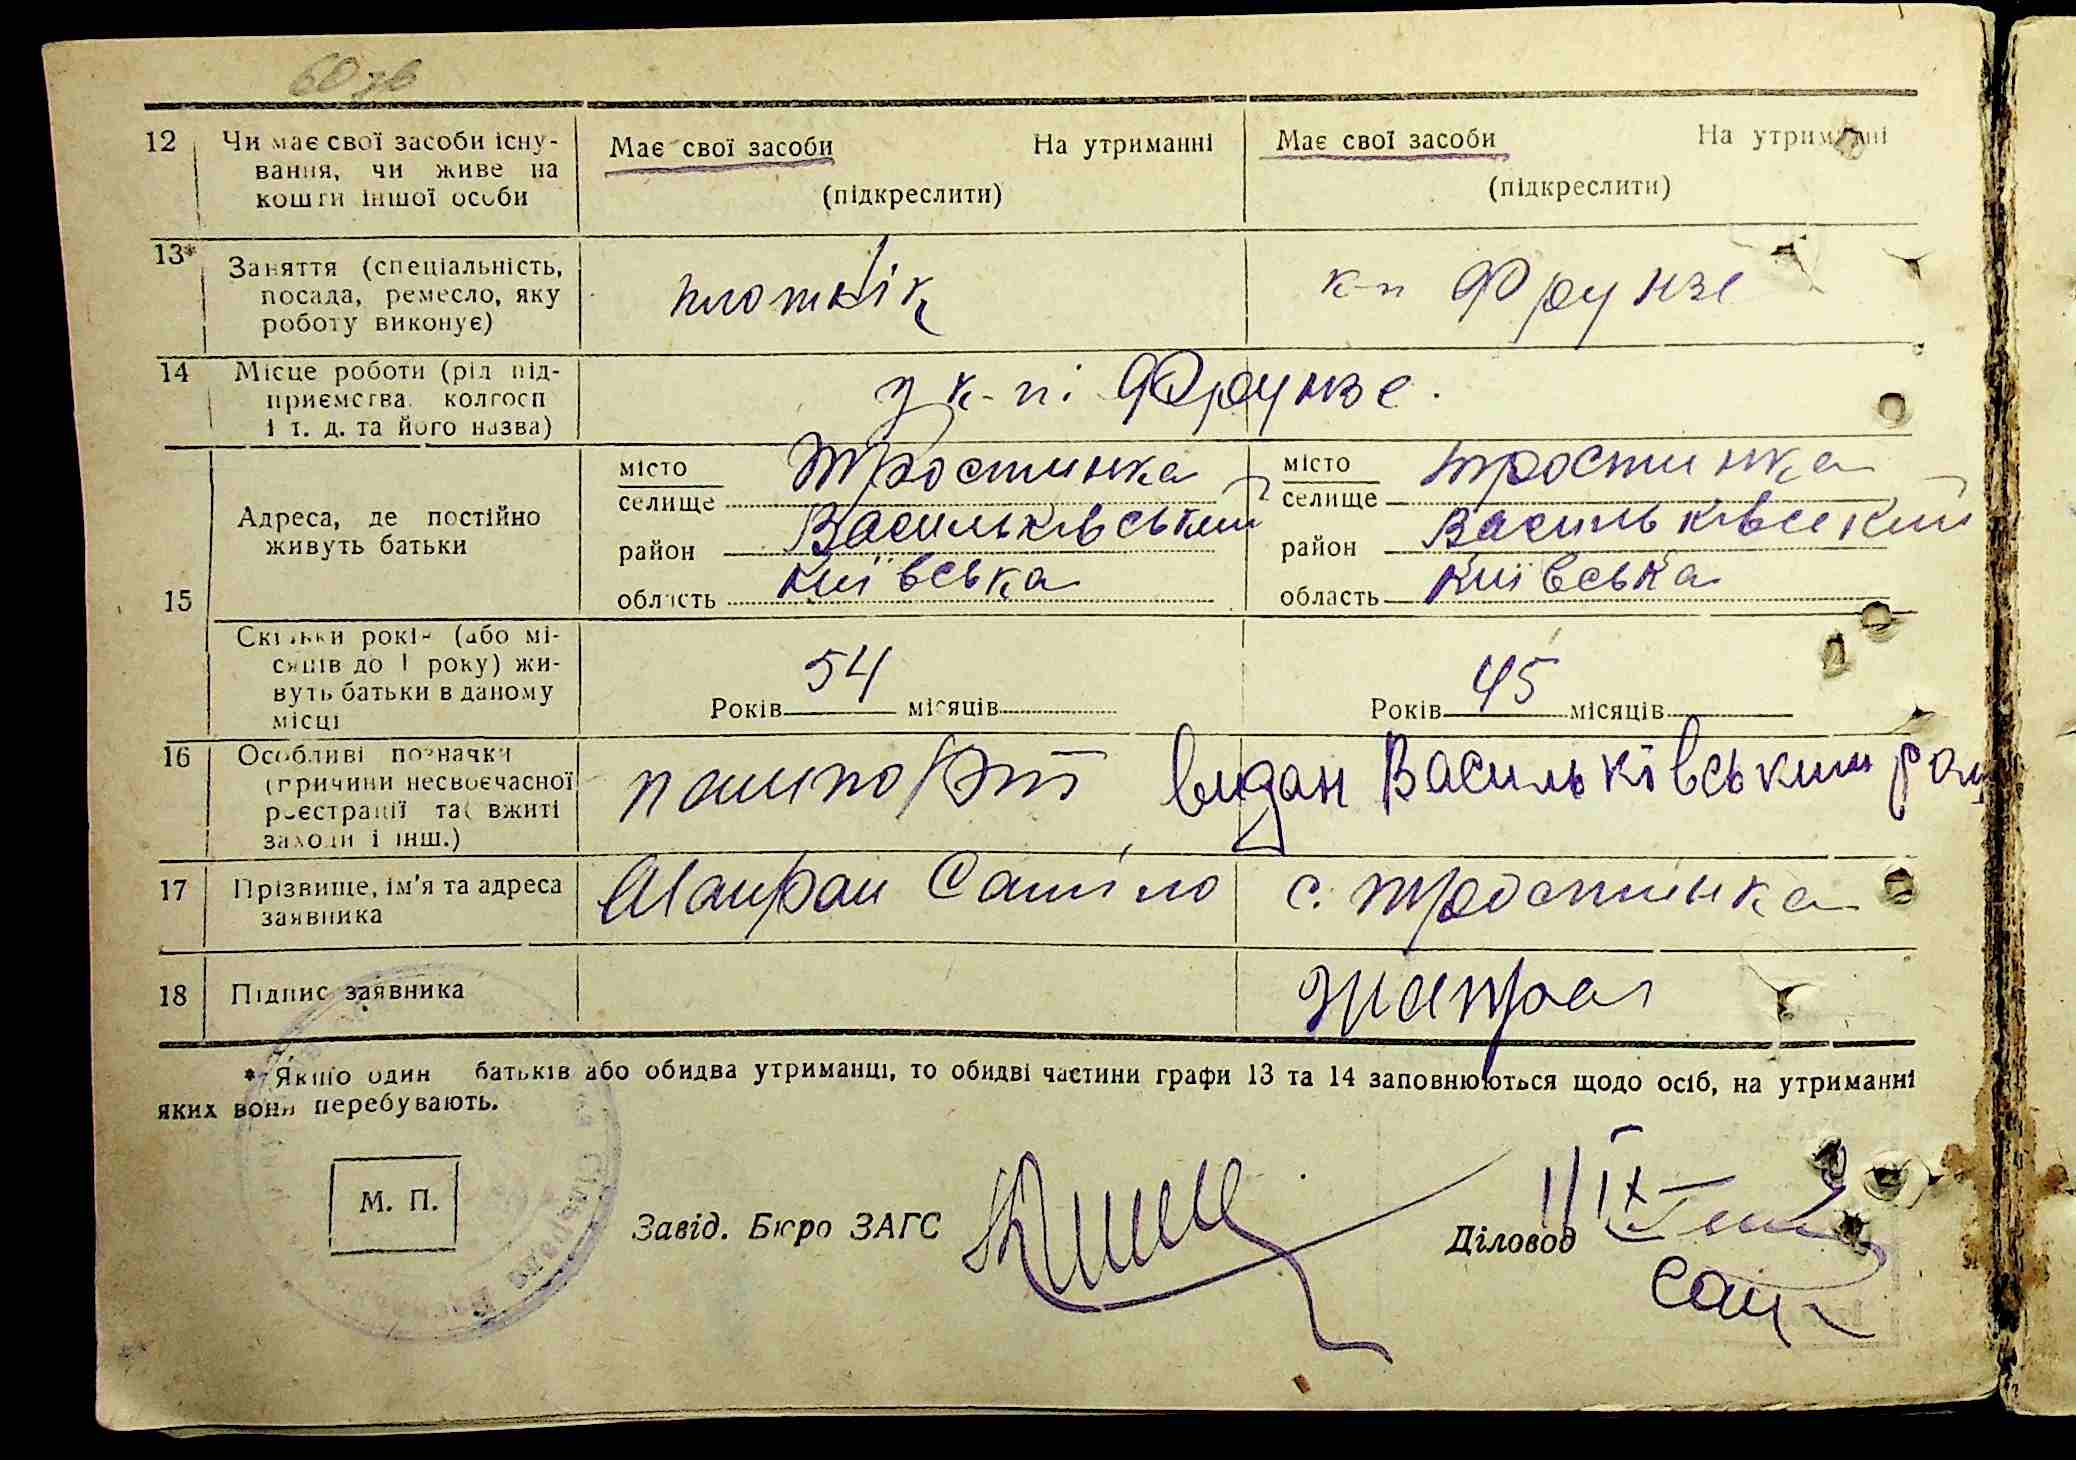 60 зв
12 Чи має свої засоби існу- Має свої засоби На утриманні Має свої засоби На утриманні
вання, чи живе на
кошти іншої особи (підкреслити) (підкреслити)
13* Заняття (спеціальність,
посада, ремесло, яку плотнік к-п Фрунзе
роботу виконує)
14 Місце роботи (рід під-
приємства, колгосп у к-пі Фрунзе.
і т. д. та його назва)
15 Адреса, де постійно
живуть батьки
місто Тростинка місто Тростинка
селище селище
район Васильківський район Васильківський
область Київська область Київська
Скільки років (або мі-
сяців до 1 року) жи-
вуть батьки в даному
місці
Років 54 місяців Років 45 місяців
16 Особливі позначки
(причини несвоєчасної пашпорт видан Васильківським рай
реєстрації та вжиті
заходи і інш.)
17 Прізвище, ім'я та адреса
заявника Шапран Саміло с. Тростинка
18 Підпис заявника
* Якщо один батьків або обидва утриманці, то обидві частини графи 13 та 14 заповнюються щодо осіб, на утриманні
яких вони перебувають.
М. П. Завід. Бюро ЗАГС Діловод